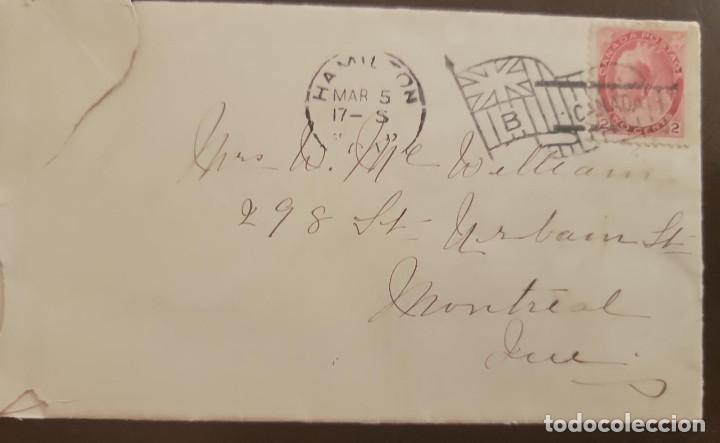 HAMILTON
MAR 5
17-S
B
CANADA
CANADA POSTAGE
2 TWO CENTS 2
Mrs W. Mc William
298 St Urbain St
Montréal
Que
todocoleccion